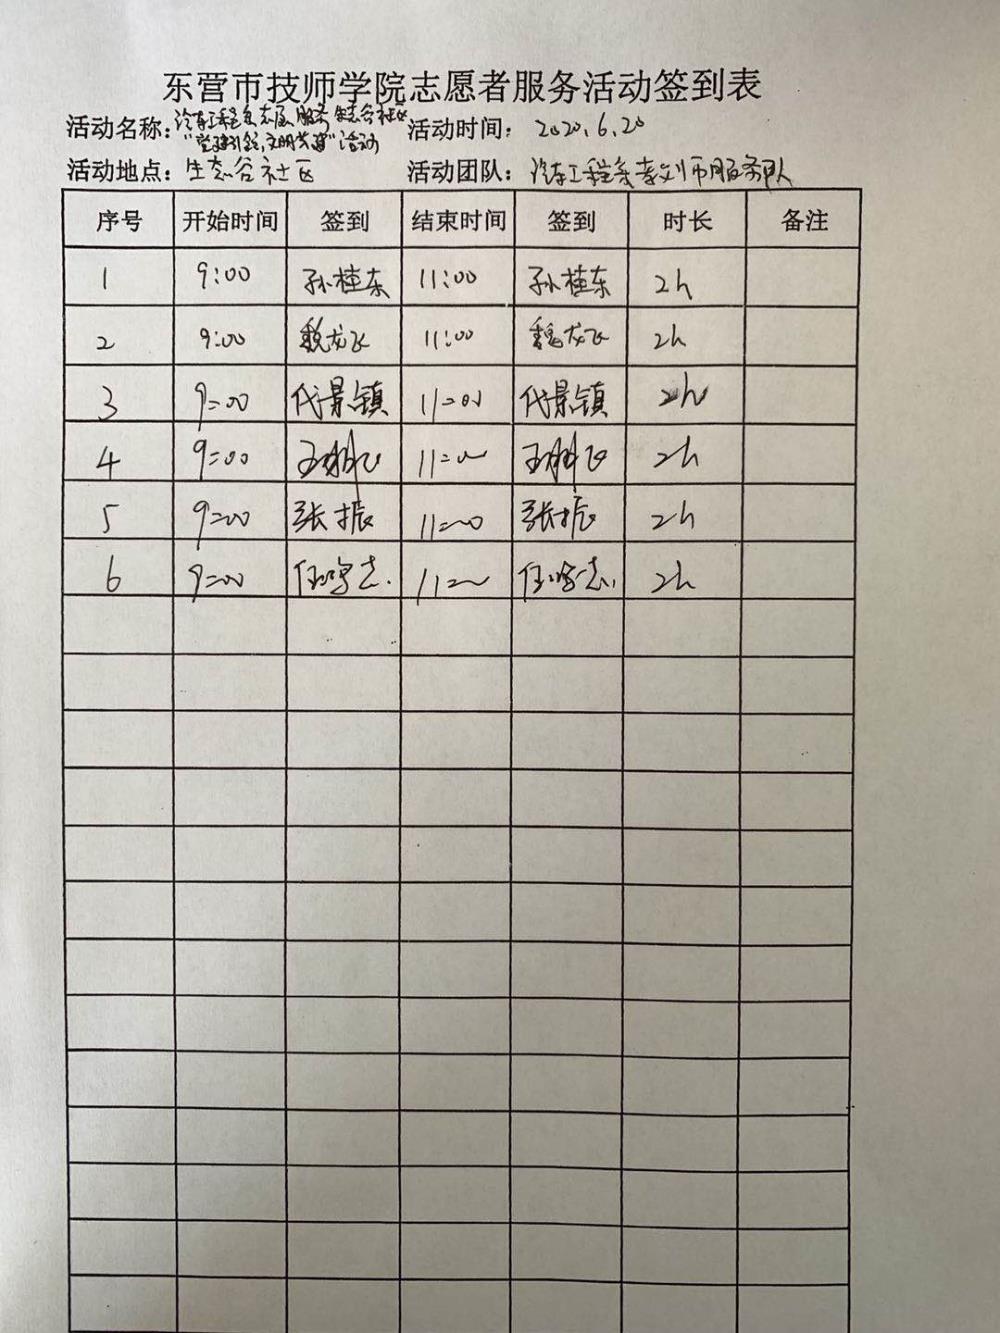 东营市技师学院志愿者服务活动签到表
活动名称：汽车工程系志愿服务生态谷社区
"党建引领，文明共建"活动
活动时间：2020.6.20
活动地点：生态谷社区
活动团队：汽车工程系 服务队
序号 开始时间 签到 结束时间 签到 时长 备注
1 9:00 孙桂东 11:00 孙桂东 2h
2 9:00 魏龙飞 11:00 魏龙飞 2h
3 9:00 代景镇 11:00 代景镇 2h
4 9:00 王鹏飞 11:00 王鹏飞 2h
5 9:00 张振 11:00 张振 2h
6 9:00 任鸣志 11:00 任鸣志 2h